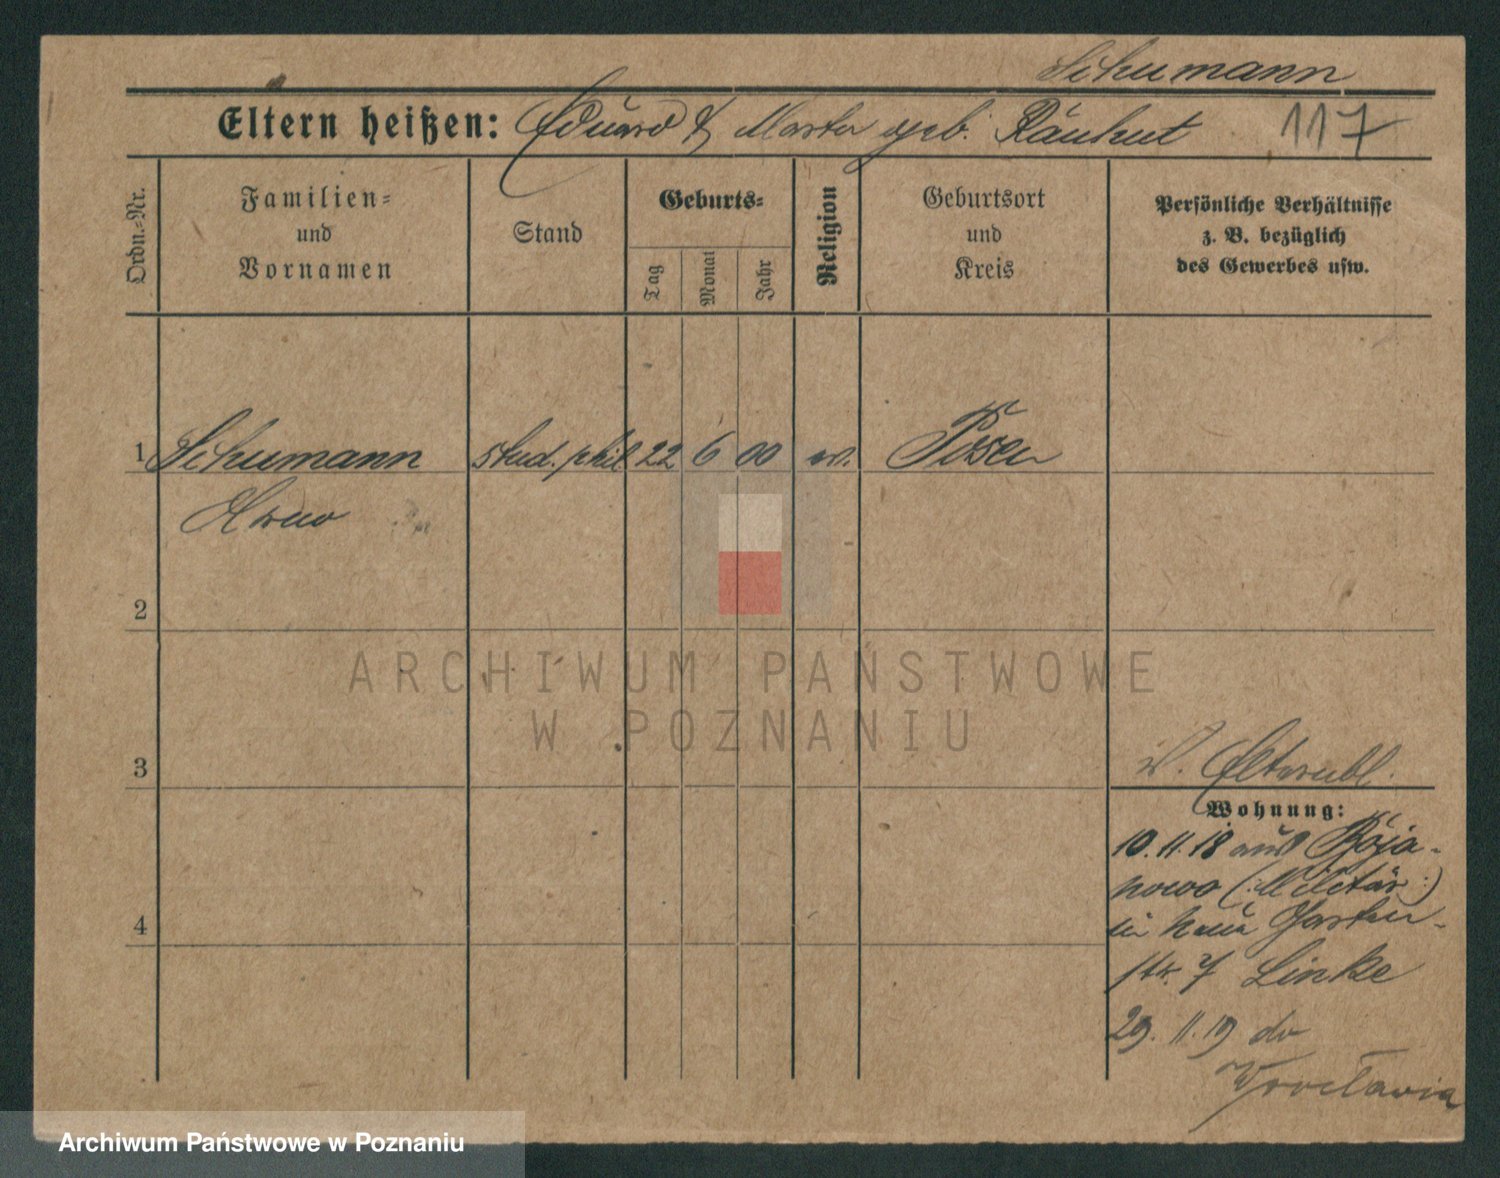 Schumann
Eltern heißen: Eduard & Marta geb. Räuhut 117
Ordn.-Nr.
Familien-
und
Vornamen
Stand
Geburts-
Tag
Monat
Jahr
Religion
Geburtsort
und
Kreis
Persönliche Verhältnisse
z. B. bezüglich
des Gewerbes usw.
1 Schumann stud. phil 22 6 00 ev. Posen
Arno
2
ARCHIWUM PAŃSTWOWE
W POZNANIU
3
Elternbl.
Wohnung:
10.11.18 aus Boja-
nowo (: Militär :)
Garten-
4
str. 7 Linke
29.11.19 do
Wrocławia
Archiwum Państwowe w Poznaniu